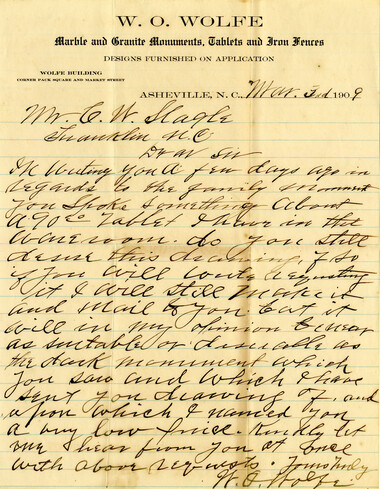 W. O. WOLFE
Marble and Granite Monuments, Tablets and Iron Fences
DESIGNS FURNISHED ON APPLICATION
WOLFE BUILDING
CORNER PACK SQUARE AND MARKET STREET
ASHEVILLE, N. C., Mar. 3rd 1909
Mr. C. W. Slagle
Franklin N.C.
Dear Sir
In Writing you a few days ago in
regards to the family monument
you spoke something about
a 90 Tablet I have in the
Wareroom. do you still
desire this drawing, if so
if you will write requesting
it I will still make it
and mail to you. but it
will in my opinion be near
as suitable or desirable as
the dark monument which
you saw and which I have
sent you drawing of, and
upon which I named you
a very low price. Kindly let
me hear from you at once
with above requests. Yours truly
W. O. Wolfe